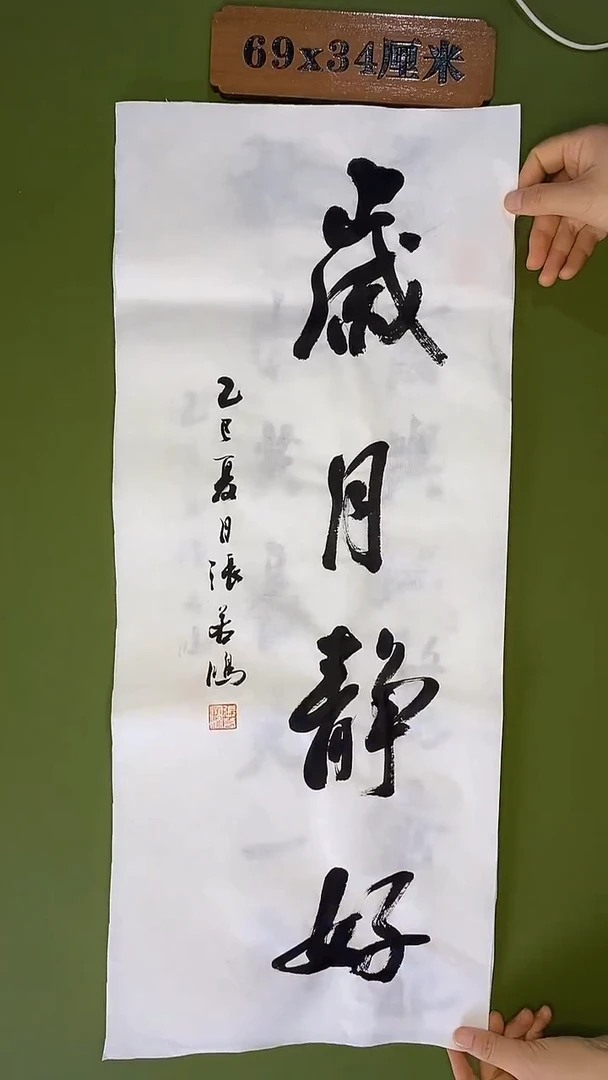 69x34厘米
歲月静好
乙巳夏月張若鴻